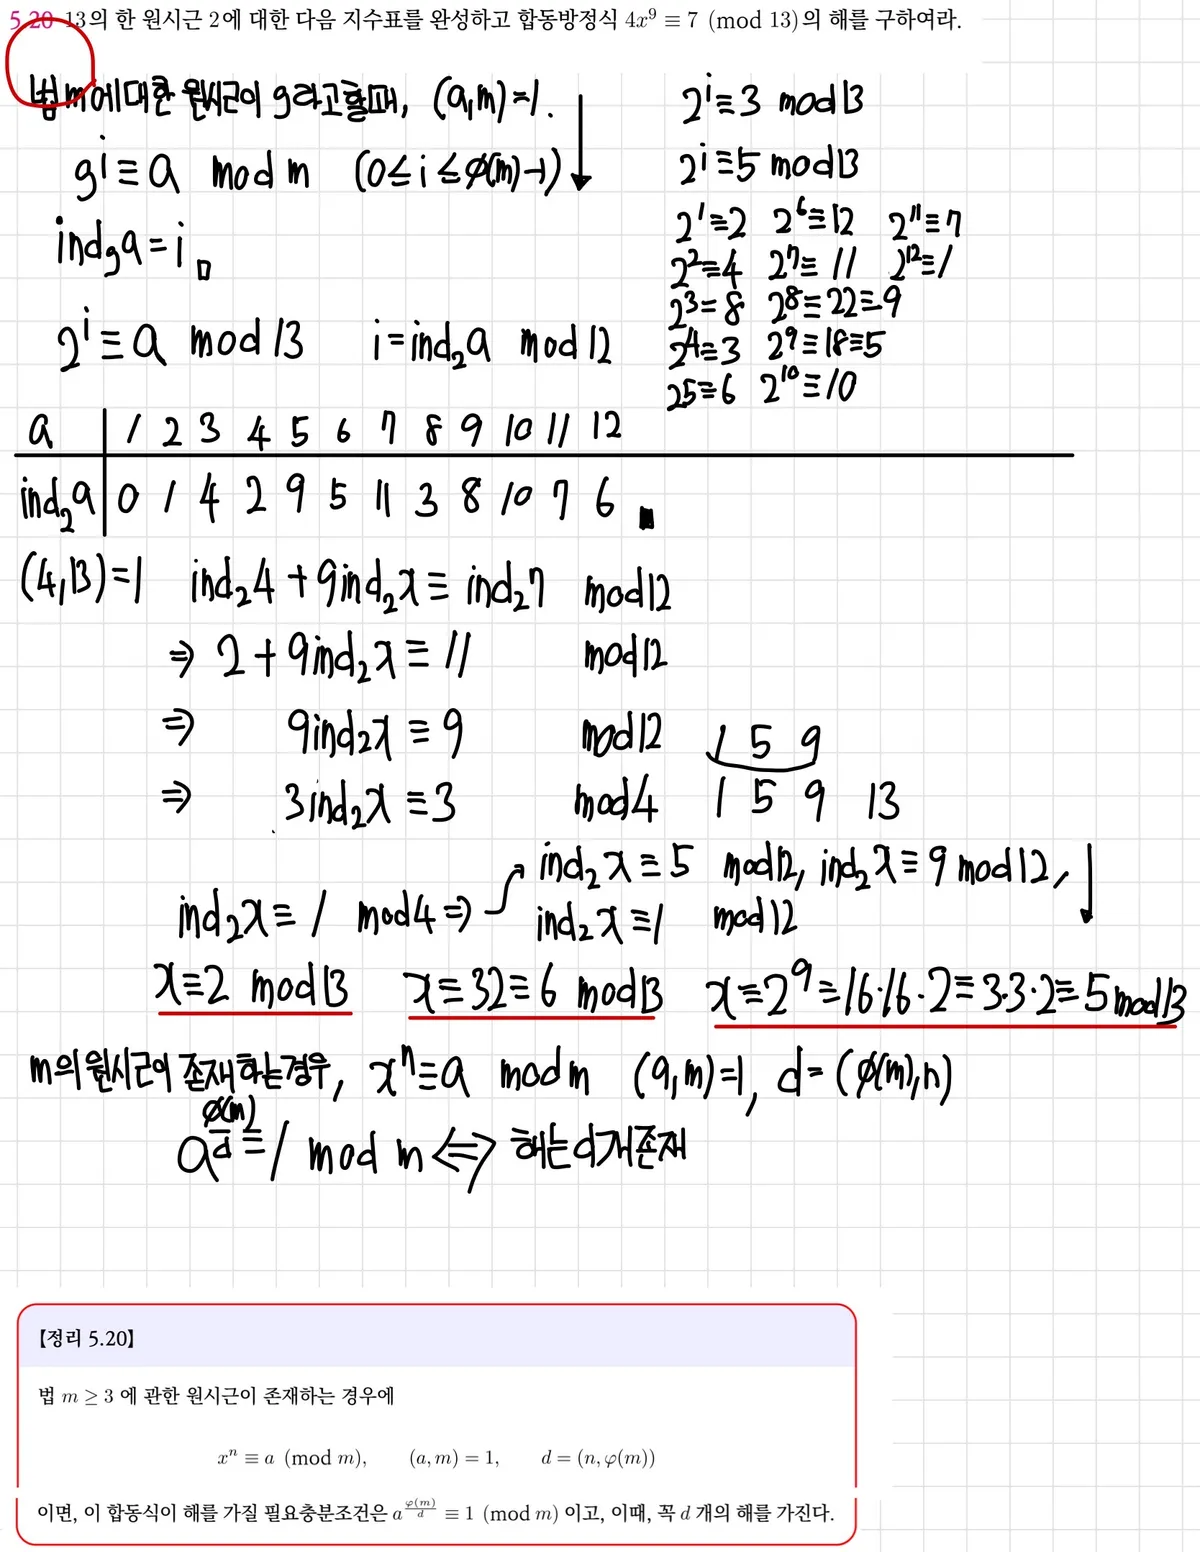 5.20 13의 한 원시근 2에 대한 다음 지수표를 완성하고 합동방정식 4x⁹ ≡ 7 (mod 13)의 해를 구하여라.
법 m에 대한 원시근이 g라고 할때, (a,m)=1.
gⁱ ≡ a mod m (0≤i≤φ(m)-1)
ind_g a = i
2ⁱ ≡ a mod 13 i=ind₂a mod 12
2ⁱ≡3 mod 13
2ⁱ≡5 mod 13
2¹≡2 2⁶≡12 2¹¹≡7
2²≡4 2⁷≡11 2¹²≡1
2³=8 2⁸≡22≡9
2⁴≡3 2⁹≡18≡5
2⁵≡6 2¹⁰≡10
a 1 2 3 4 5 6 7 8 9 10 11 12
ind₂a 0 1 4 2 9 5 11 3 8 10 7 6
(4,13)=1 ind₂4+9ind₂x≡ind₂7 mod 12
⇒ 2+9ind₂x≡11 mod 12
⇒ 9ind₂x≡9 mod 12 1 5 9
⇒ 3ind₂x≡3 mod 4 1 5 9 13
ind₂x≡5 mod 12, ind₂x≡9 mod 12,
ind₂x≡1 mod 4 ⇒ ind₂x≡1 mod 12
x≡2 mod 13 x≡32≡6 mod 13 x≡2⁹≡16·16·2≡3·3·2≡5 mod 13
m의 원시근이 존재하는 경우, xⁿ≡a mod m (a,m)=1, d=(φ(m),n)
a^(φ(m)/d)≡1 mod m ⟺ 해는 d개 존재
【정리 5.20】
법 m ≥ 3 에 관한 원시근이 존재하는 경우에
xⁿ ≡ a (mod m), (a, m) = 1, d = (n, φ(m))
이면, 이 합동식이 해를 가질 필요충분조건은 a^(φ(m)/d) ≡ 1 (mod m) 이고, 이때, 꼭 d 개의 해를 가진다.